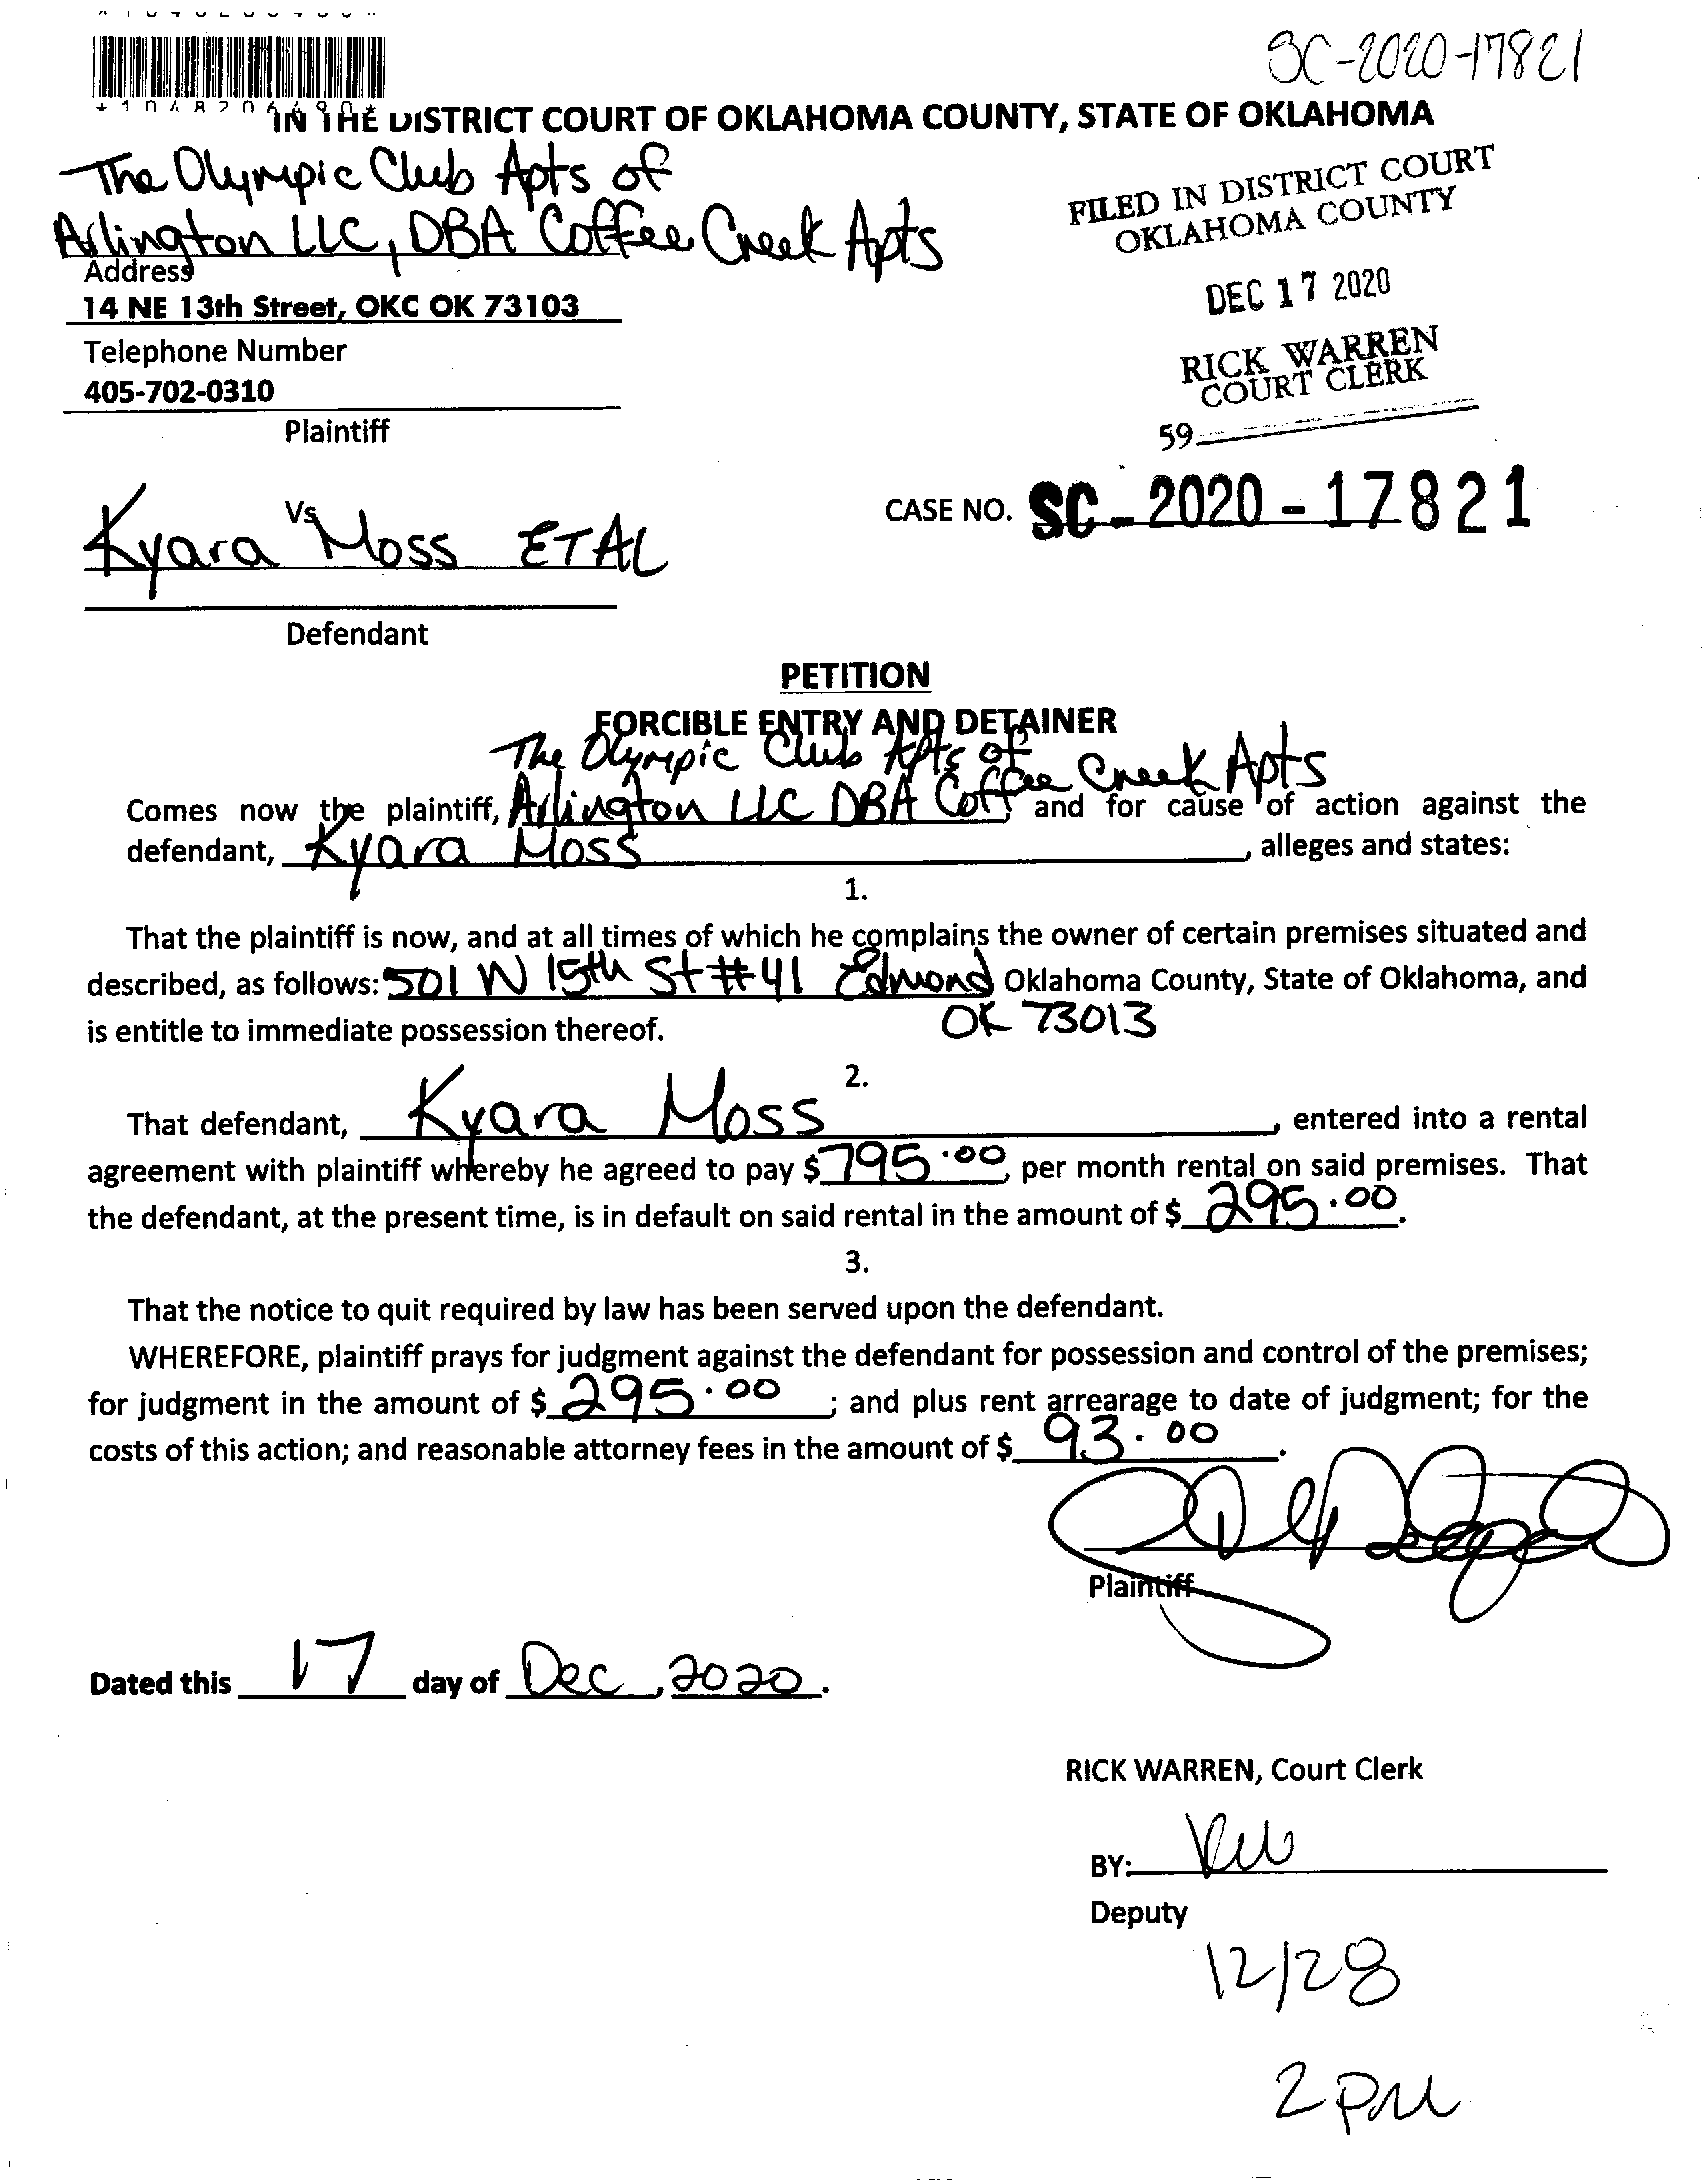 SC-2020-17821
IN THE DISTRICT COURT OF OKLAHOMA COUNTY, STATE OF OKLAHOMA
The Olympic Club Apts of
Arlington LLC, DBA Coffee Creek Apts
Address
14 NE 13th Street, OKC OK 73103
Telephone Number
405-702-0310
Plaintiff
FILED IN DISTRICT COURT
OKLAHOMA COUNTY
DEC 17 2020
RICK WARREN
COURT CLERK
59
Vs
Kyara Moss ETAL
Defendant
CASE NO. SC - 2020 - 17821
PETITION
FORCIBLE ENTRY AND DETAINER
The Olympic Club Apts of
Comes now the plaintiff, Arlington LLC DBA Coffee Creek Apts and for cause of action against the
defendant, Kyara Moss, alleges and states:
1.
That the plaintiff is now, and at all times of which he complains the owner of certain premises situated and
described, as follows: 501 W 15th St #41 Edmond Oklahoma County, State of Oklahoma, and
is entitle to immediate possession thereof. OK 73013
2.
That defendant, Kyara Moss, entered into a rental
agreement with plaintiff whereby he agreed to pay $795.00, per month rental on said premises. That
the defendant, at the present time, is in default on said rental in the amount of $ 295.00.
3.
That the notice to quit required by law has been served upon the defendant.
WHEREFORE, plaintiff prays for judgment against the defendant for possession and control of the premises;
for judgment in the amount of $ 295.00; and plus rent arrearage to date of judgment; for the
costs of this action; and reasonable attorney fees in the amount of $ 93.00.
Plaintiff
Dated this 17 day of Dec, 2020.
RICK WARREN, Court Clerk
BY:
Deputy
12/28
2 PM